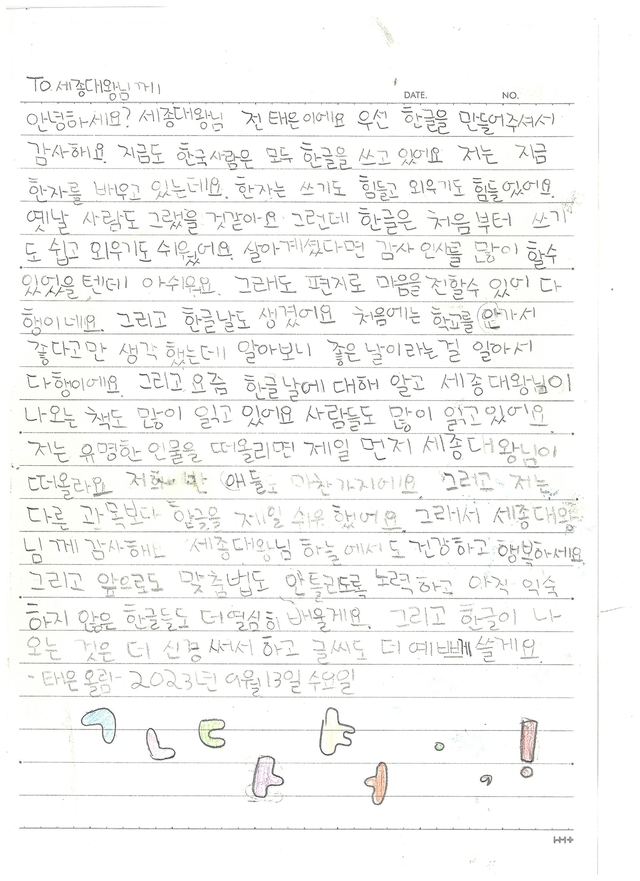 To 세종대왕님께!
DATE. NO.
안녕하세요? 세종대왕님 전 태은이에요 우선 한글을 만들어주셔서
감사해요. 지금도 한국사람은 모두 한글을 쓰고 있어요 저는 지금
한자를 배우고 있는데요. 한자는 쓰기도 힘들고 외우기도 힘들었어요.
옛날 사람도 그랬을 것같아요 그런데 한글은 처음부터 쓰기
도 쉽고 외우기도 쉬웠어요. 살아계셨다면 감사 인사를 많이 할수
있었을 텐데 아쉬워요. 그래도 편지로 마음을 전할수 있어 다
행이네요. 그리고 한글날도 생겼어요 처음에는 학교를 안가서
좋다고만 생각 했는데 알아보니 좋은 날이라는걸 알아서
다행이에요. 그리고 요즘 한글날에 대해 알고 세종대왕님이
나오는 책도 많이 읽고 있어요 사람들도 많이 읽고 있어요.
저는 유명한 인물을 떠올리면 제일 먼저 세종대왕님이
떠올라요 저희 반 애들도 마찬가지에요. 그리고 저는
다른 과목보다 한글을 제일 쉬워 했어요. 그래서 세종대왕
님께 감사해요 세종대왕님 하늘에서도 건강하고 행복하세요.
그리고 앞으로도 맞춤법도 안틀리도록 노력하고 아직 익숙
하지 않은 한글들도 더 열심히 배울게요. 그리고 한글이 나
오는 것은 더 신경 써서 하고 글씨도 더 예쁘게 쓸게요.
-태은 올림- 2023년 9월 13일 수요일
ㄱ ㄴ ㄷ ㅑ . !
ㅏ ㅓ ,